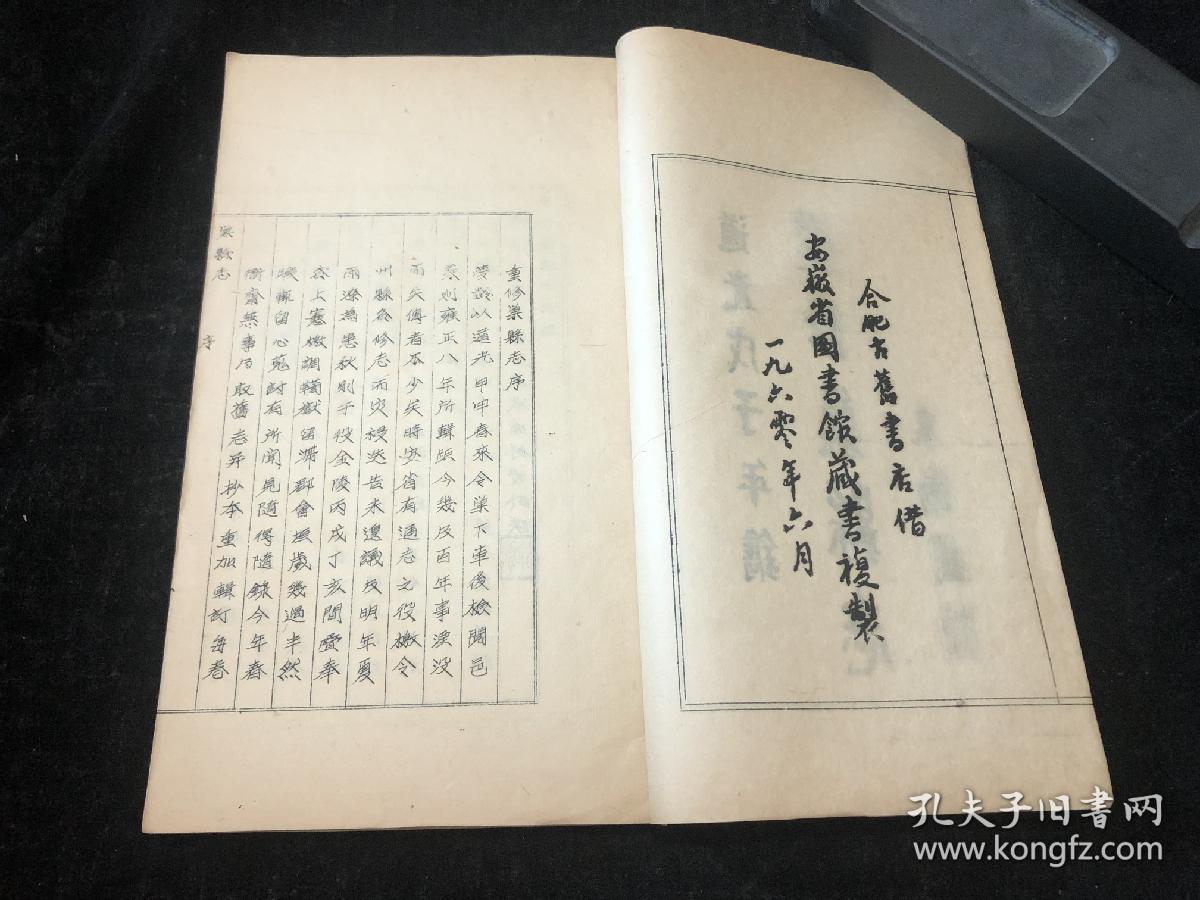 合肥古舊書店借
安徽省图書館藏書複製
一九六零年六月
道光戊子年鐫
重修巢縣志序
陵敱以道光甲申春來令巢下車後檢閱邑
乘則雍正八年所輯距今幾及百年事湮没
而失傳者不少矣時安省有通志之役檄令
州縣各修志而灾祲迭告未遑議及明年夏
雨潦為患秋則于役金陵丙戌丁亥間疊奉
各上憲檄調讞獄留滞郡會垣歲幾過半然
留心蒐討有所聞見隨得隨錄今年春
衙齋無事乃取舊志并抄本重加輯訂每卷
巢縣志
序
孔夫子旧书网
www.kongfz.com